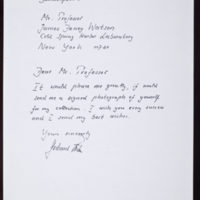 Mr. Professor
James Dewey Watson
Cold Spring Harbor Laboratory
New York
Dear Mr. Professor
It would please me greatly, if could
send me a signed photograph of yourself
for my collection. I wish you every success
and I send my best wishes.
Yours sincerely